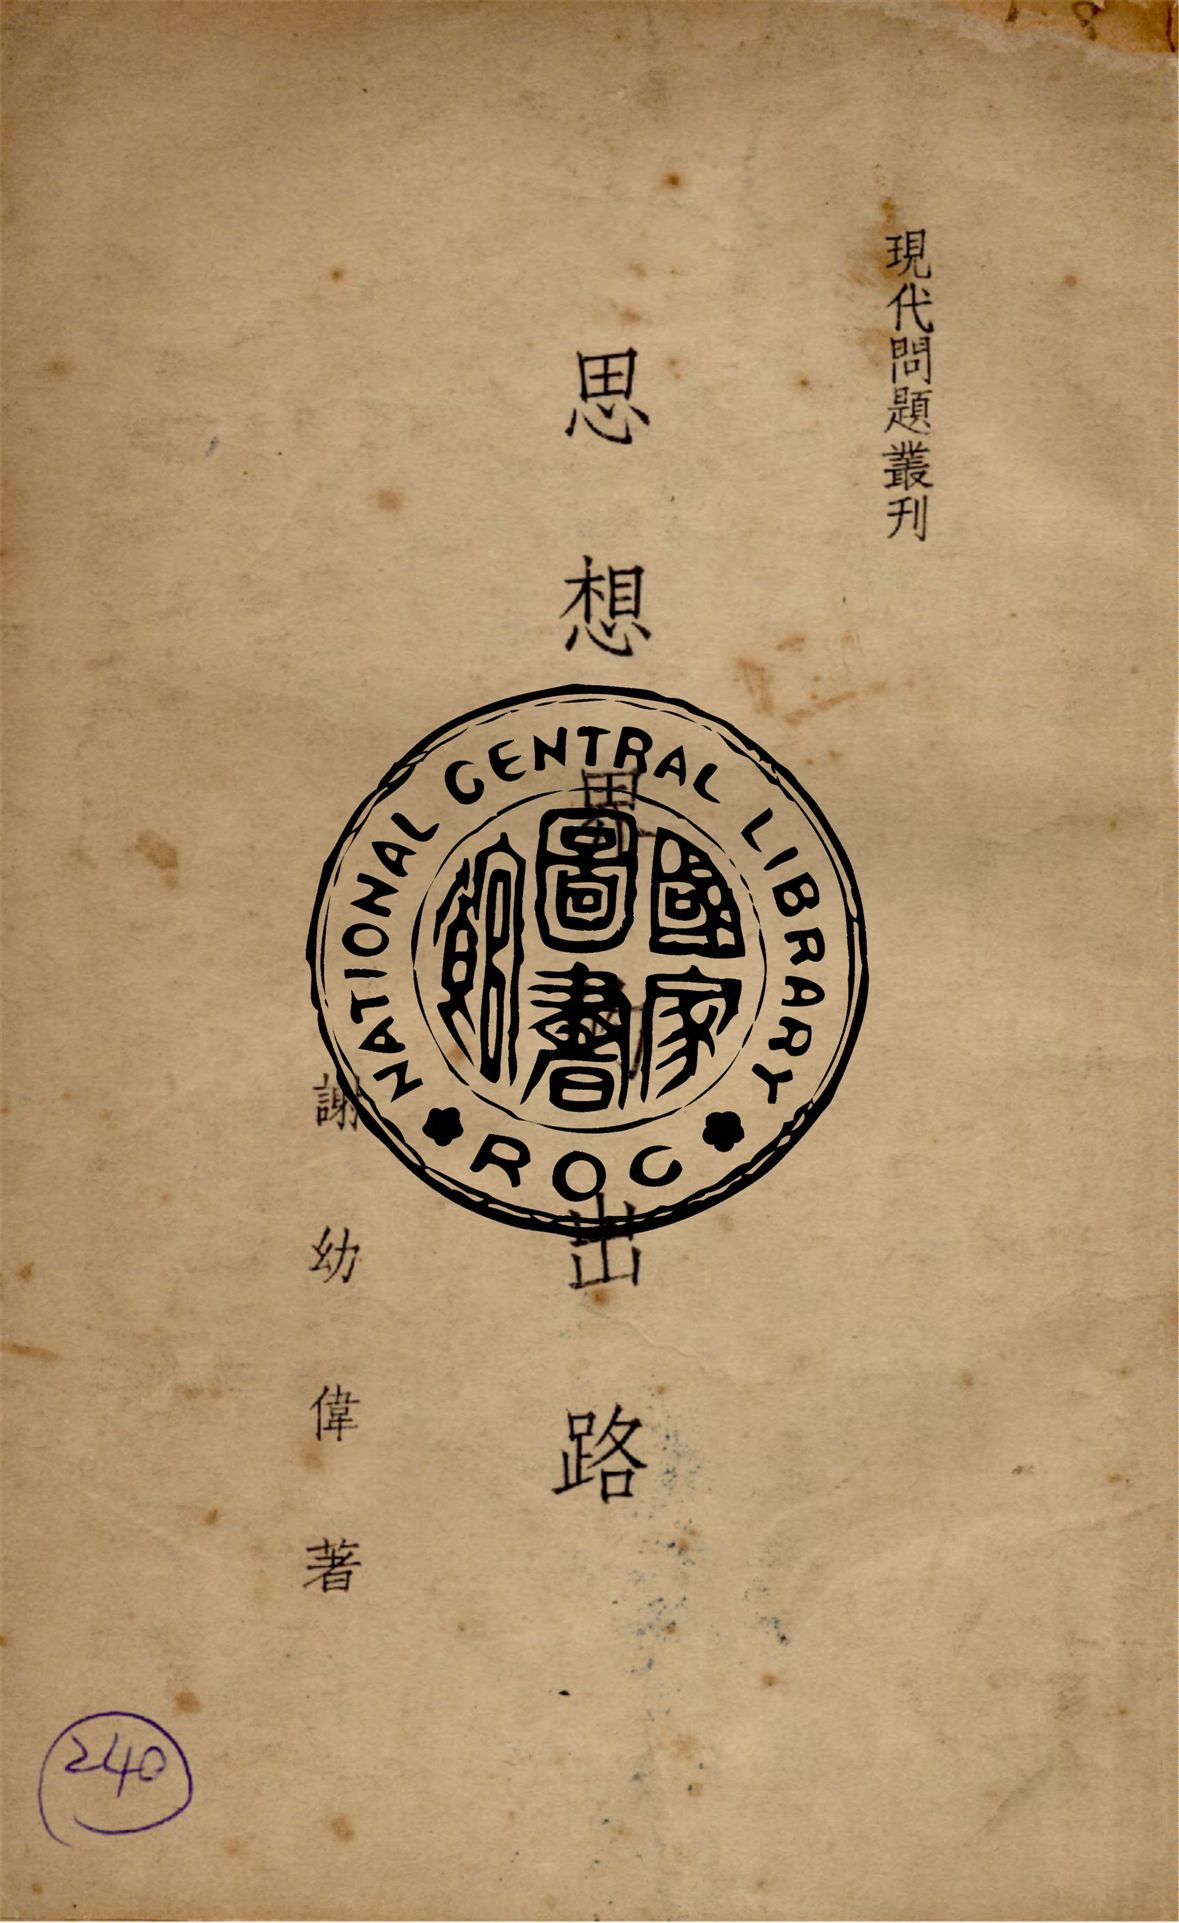 現代問題叢刊
思想界的出路
謝幼偉著
NATIONAL CENTRAL LIBRARY
國家
圖書
館
ROC
240